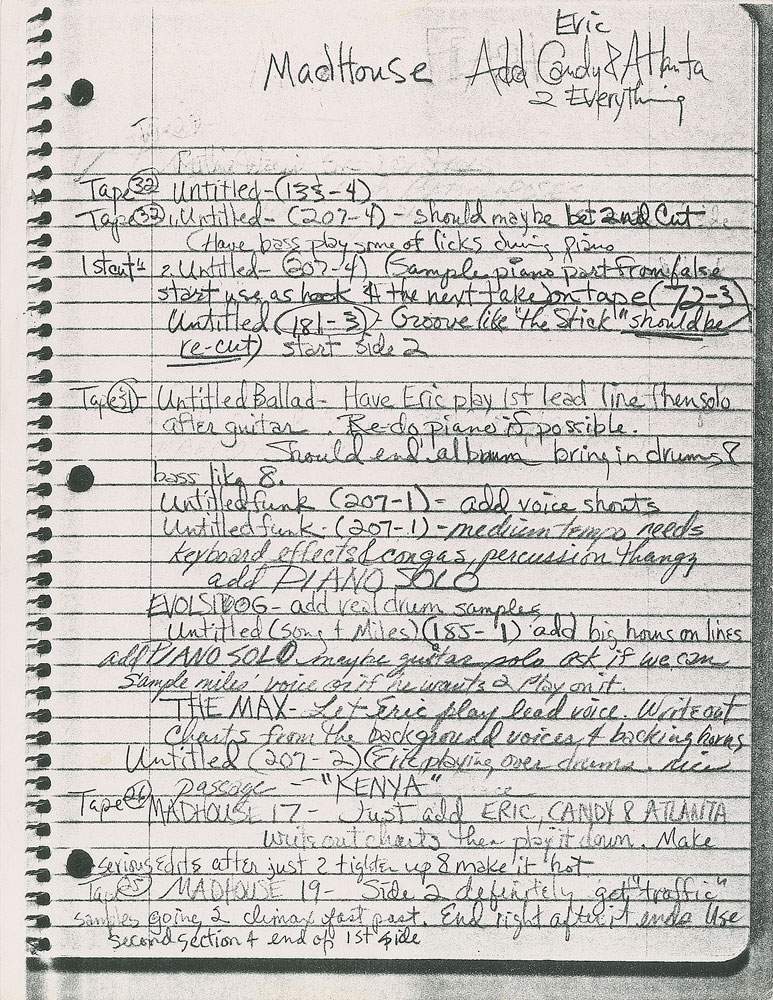 Eric
MadHouse Add Candy & Atlanta
2 Everything
Tape 32 Untitled-(133-4)
Tape 32 1. Untitled- (207-4) - should maybe be 2nd Cut
(Have bass play some of licks during piano
1st cut" 2. Untitled- (207-4) (Sample piano part from false
start use as hook 4 the next take) on tape (72-3)
Untitled (181-3)- Groove like "the Stick" should be
re-cut) start side 2
Tape 31- Untitled Ballad- Have Eric play 1st lead line then solo
after guitar. Re-do piano if possible.
Should end album bring in drums &
bass like 8.
Untitled funk (207-1)- add voice shouts
Untitled funk- (207-1)-medium tempo needs
keyboard effects & congas, percussion thangz
add PIANO SOLO
EVOLSIDOG- add real drum samples
Untitled (Song 4 Miles) (185-1) add big horns on lines
add PIANO SOLO maybe guitar solo ask if we can
sample miles' voice or if he wants 2 play on it.
THE MAX- Let Eric play lead voice. Write out
charts from the background voices 4 backing horns
Untitled (207-2) (Eric playing over drums. nice
passage - "KENYA"
Tape 26 MADHOUSE 17- Just add ERIC, CANDY & ATLANTA
Write out charts then play it down. Make
serious edits after just 2 tighten up & make it hot
Tape 25 MADHOUSE 19- Side 2 definitely get "traffic"
samples going 2 climax fast part. End right after it ends Use
second section 4 end of 1st side